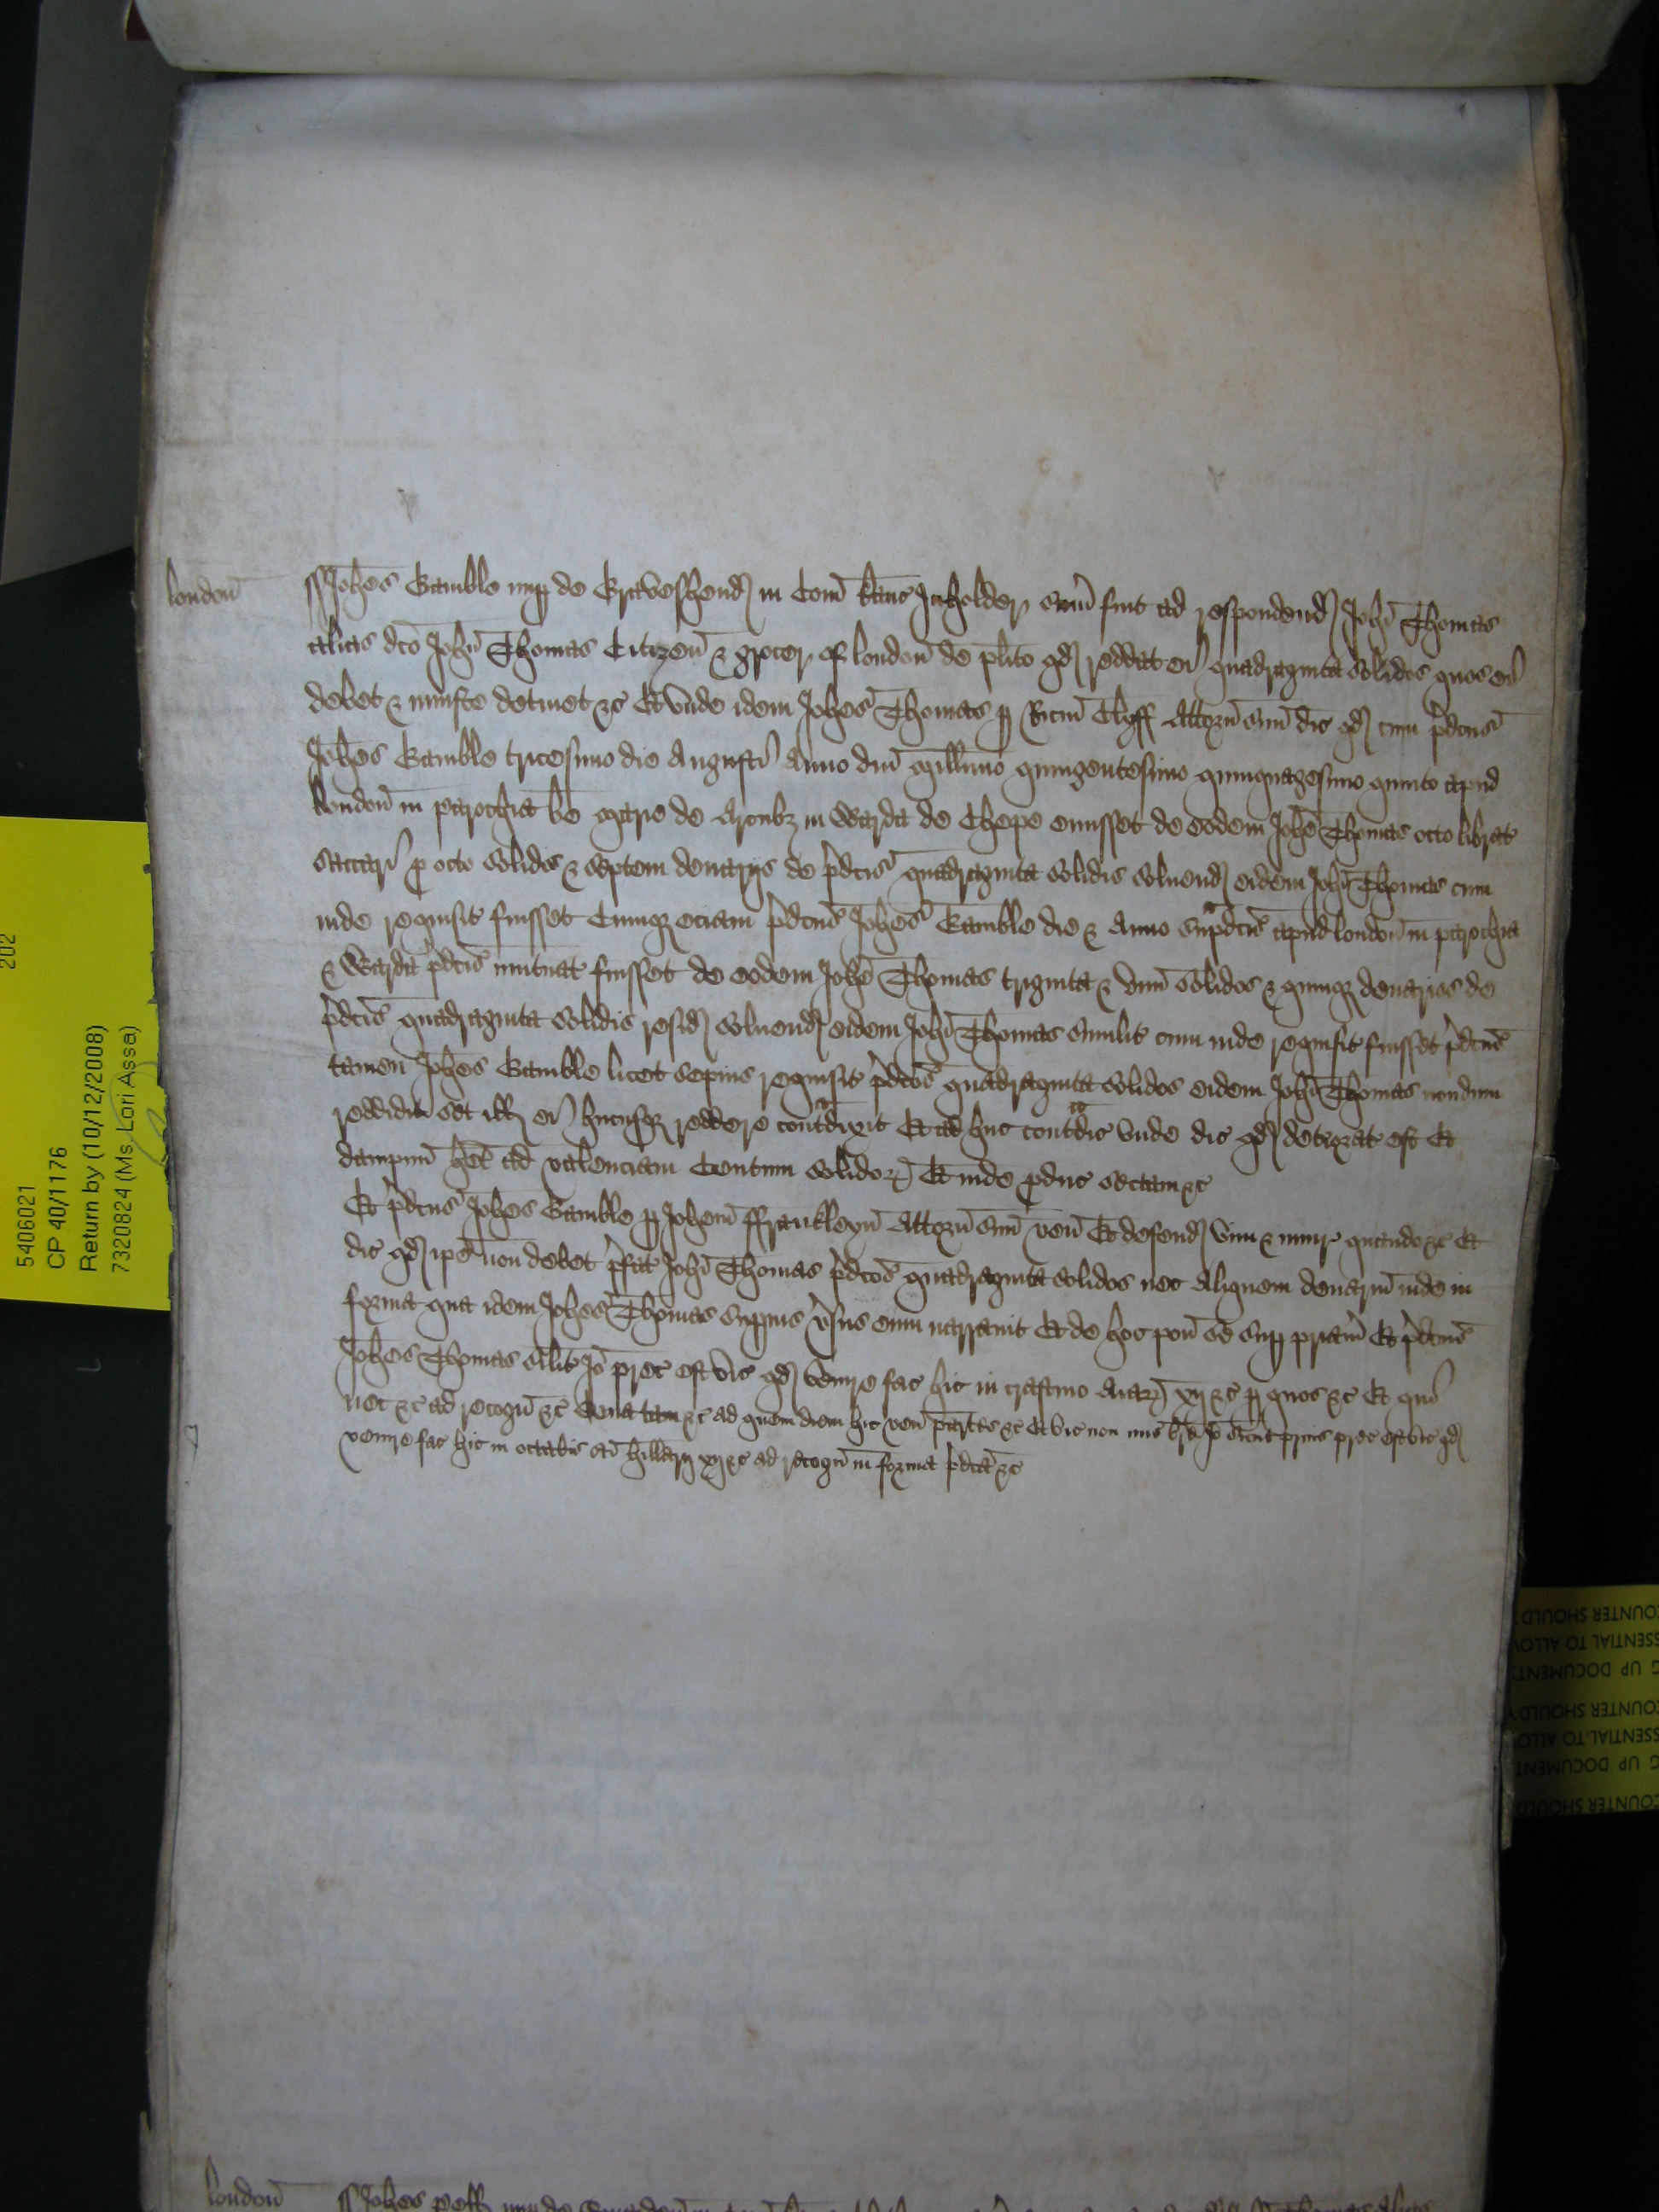 londoñ
ss Joħes Gamble nup de Graveshend in Com̃ kanc Inholder sum̃ fuit ad respondend Joħi Thomas
alias dc̃o Joħn Thomas Citizen̄ & grocer of london̄ de pl̃ito qd reddat ei quadraginta solidos quos ei
debet & iniuste detinet &c Et unde idem Joħes Thomas p Ric̃m Clyff Attorñ suũ dic̃ qd cum p̃dc̃us
Joħes Gamble tricesimo die Augusti Anno dñi Mill̃imo quingentesimo quinquagesimo quinto apud
london̄ in parochia bẽ Marie de Arcubȝ in Warda de Chepe emisset de eodem Joħe Thomas octo librat̃
saccari p octo solidis & septem denarijs de p̃dc̃is quadraginta solidis solvend eidem Joħi Thomas cum
inde requisit̃ fuisset Cumqȝ eciam p̃dc̃us Joħes Gamble die & Anno sup̃dc̃is apud london̄ in parochia
& Warda p̃dc̃is mutuat̃ fuisset de eodem Joħe Thomas triginta & unũ solidos & quinqȝ denarios de
p̃dc̃is quadraginta solidis resid solvend eidem Joħi Thomas similit̃ cum inde requisit̃ fuisset p̃dc̃us
tamen Joħes Gamble licet sepius requisit̃ p̃dc̃os quadraginta solidos eidem Joħi Thomas nondum
reddidit set ill̃ ei hucusqȝ reddere contradixit Et ad huc contradic̃ unde dic̃ qd deteriorat̃ est Et
dampnũ h̃et ad valenciam Centum solidoꝝ Et inde produc̃ sectam &c
Et p̃dc̃us Joħes Gamble p Joħem ffrankleyn̄ Attorñ suũ ven̄ Et defend vim & iniur̃ quando &c Et
dic̃ qd ip̃e non debet p̃fat̃ Joħi Thomas p̃dc̃os quadraginta solidos nec aliquem denariũ inde in
forma qua idem Joħes Thomas superius ṽsus eum narravit Et de hoc pon̄ se sup pr̃iam Et p̃dc̃us
Joħes Thomas sil̃it̃ Jõ prec̃ est vic̃ qd venire fac̃ hic in crastino Aiaꝝ xij &c p quos &c Et qui
nec &c ad recogñ &c Quia tam &c ad quem diem hic ven̄ partes &c Et vic̃ non mis̃ br̃e Jõ sicut prius prec̃ est vic̃ qd
venire fac̃ hic in octabis sc̃i Hillarij xij &c ad recogñ in forma p̃dc̃a &c
londoñ
ss Joħes
202
5406021
CP 40/1176
Return by (10/12/2008)
7320824 (Ms. Lori Assa)
COUNTER SHOULD
SSENTIAL TO ALLOW
G UP DOCUMENTS
COUNTER SHOULD
SSENTIAL TO ALLOW
G UP DOCUMENT
COUNTER SHOULD